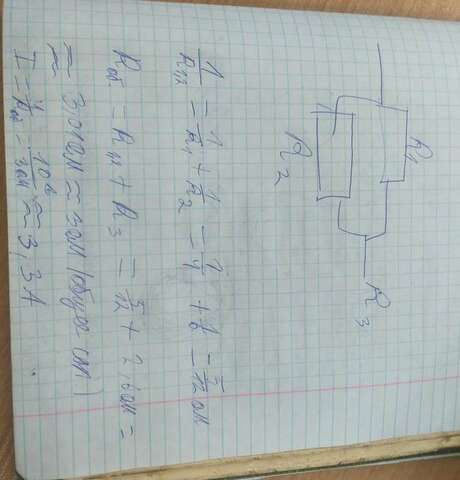 R₁
R₂
R₃
1/R₁,₂ = 1/R₁ + 1/R₂ = 1/4 + 1/6 = 5/12 ом
Rоб = R₁₂ + R₃ = 5/12 + 2,6 ом =
= 3 ом (общее соп)
I = U/Rоб = 10в/3ом = 3,3 А